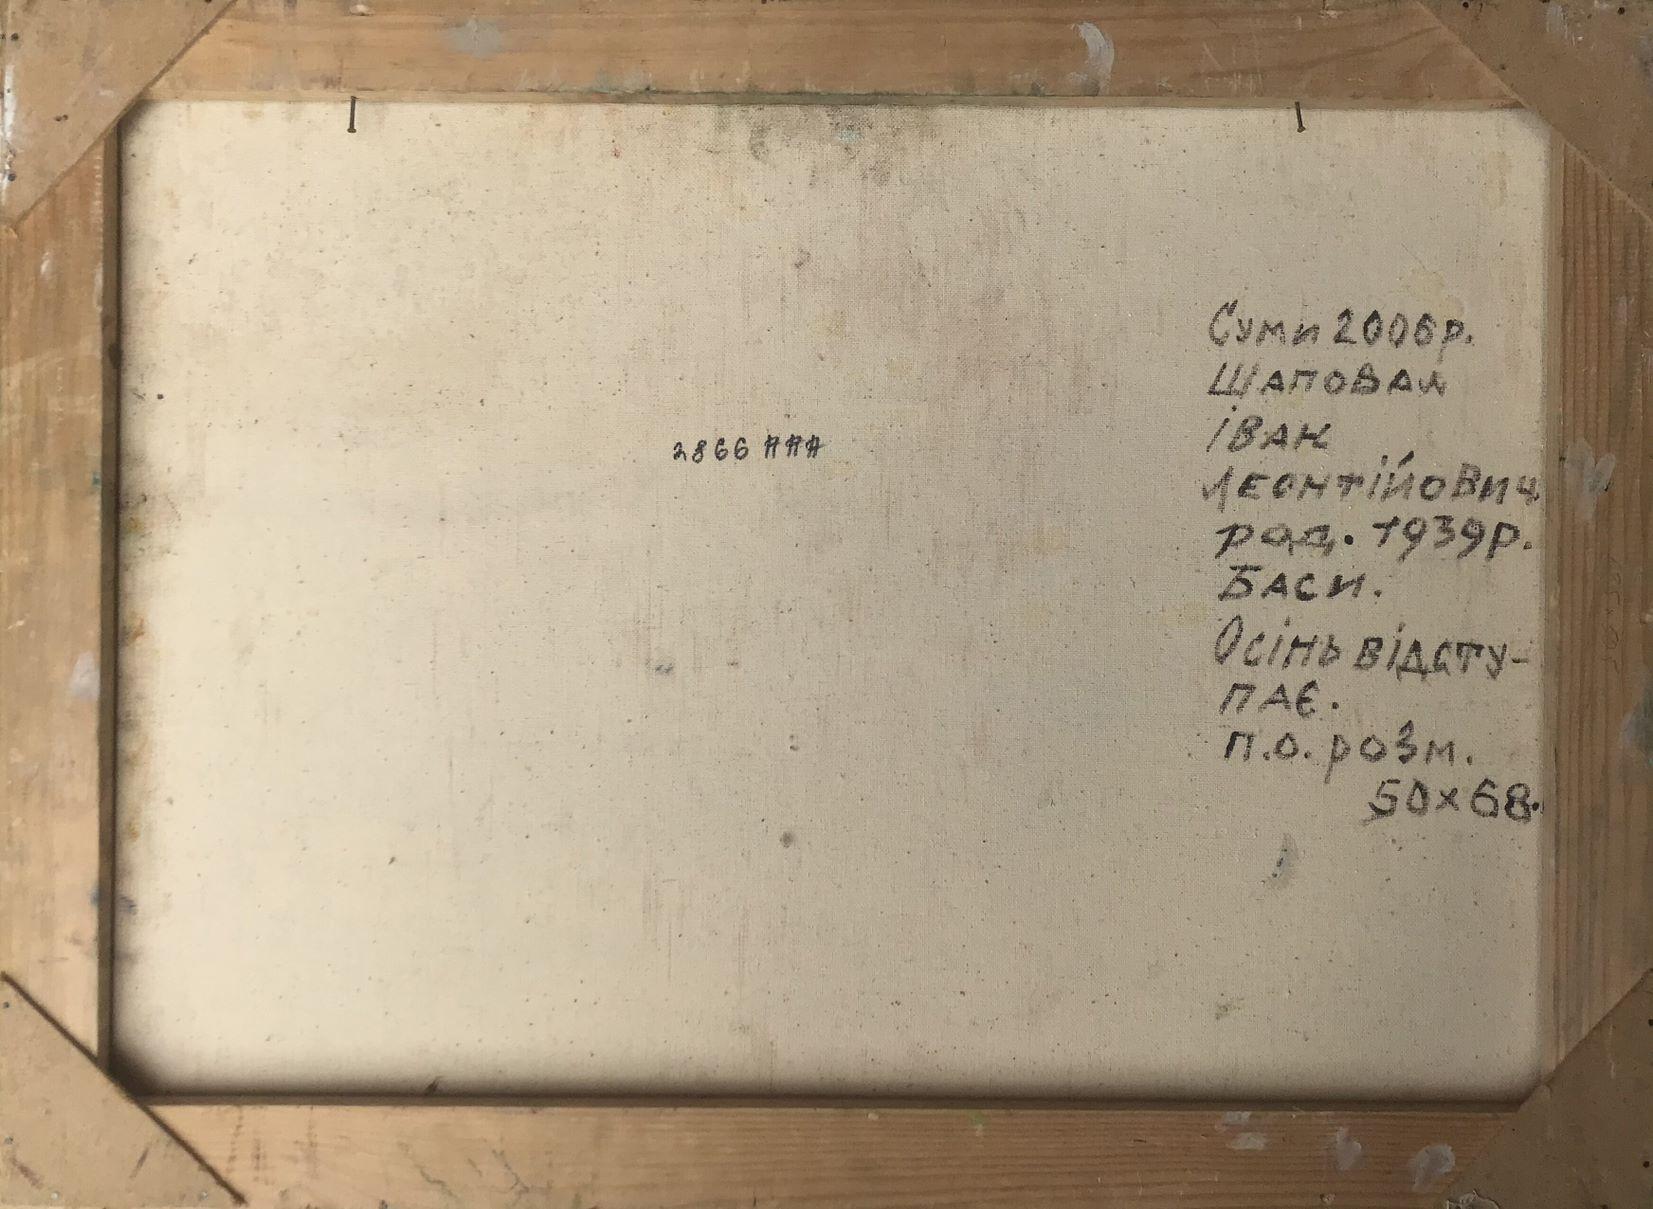 Суми 2006р.
Шаповал
Іван
2866 ААА
Леонтійович
род. 1939р.
Баси.
Осінь відсту-
пає.
п.о. розм.
50х68.